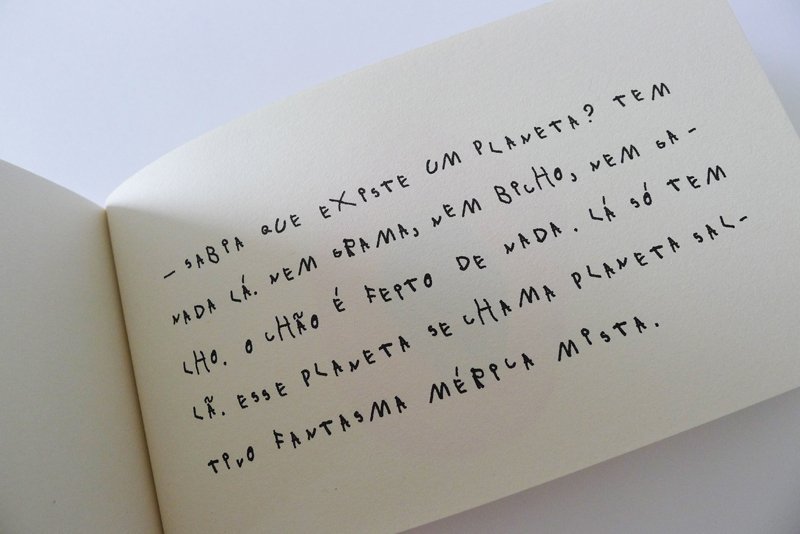 – SABIA QUE EXISTE UM PLANETA? TEM
NADA LÁ. NEM GRAMA, NEM BICHO, NEM GA-
LHO. O CHÃO É FEITO DE NADA. LÁ SÓ TEM
LÃ. ESSE PLANETA SE CHAMA PLANETA SAL-
TIVO FANTASMA MÉRICA MISTA.